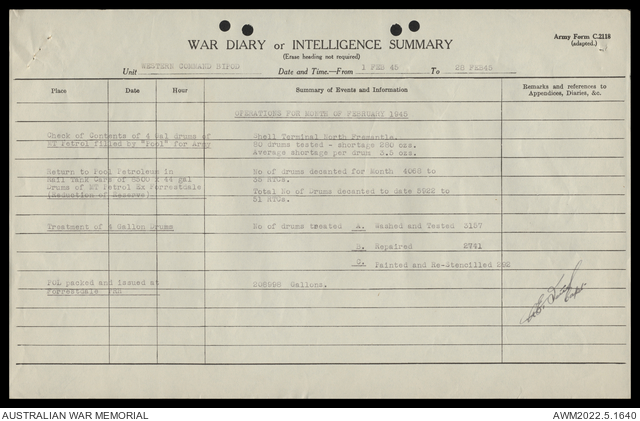 Army Form C.2118
(adapted.)
WAR DIARY or INTELLIGENCE SUMMARY
(Erase heading not required)
Unit WESTERN COMMAND BIPOD Date and Time.—From 1 FEB 45 To 28 FEB45
Place Date Hour Summary of Events and Information Remarks and references to
Appendices, Diaries, &c.
OPERATIONS FOR MONTH OF FEBRUARY 1945
Check of Contents of 4 Gal drums of Shell Terminal North Fremantle.
MT Petrol filled by "Pool" for Army 80 drums tested - shortage 280 ozs.
Average shortage per drum 3.5 ozs.
Return to Pool Petroleum in No of drums decanted for Month 4088 to
Rail Tank Cars of 8500 x 44 gal RTCs.
Drums of MT Petrol Ex Forrestdale Total No of Drums decanted to date 5922 to
(Reduction of Reserve) 51 RTCs.
Treatment of 4 Gallon Drums No of drums treated A. Washed and Tested 3157
B. Repaired 2741
C. Painted and Re-Stencilled 292
POL packed and issued at 208998 Gallons.
Forrestdale
Capt.
AUSTRALIAN WAR MEMORIAL AWM2022.5.1640